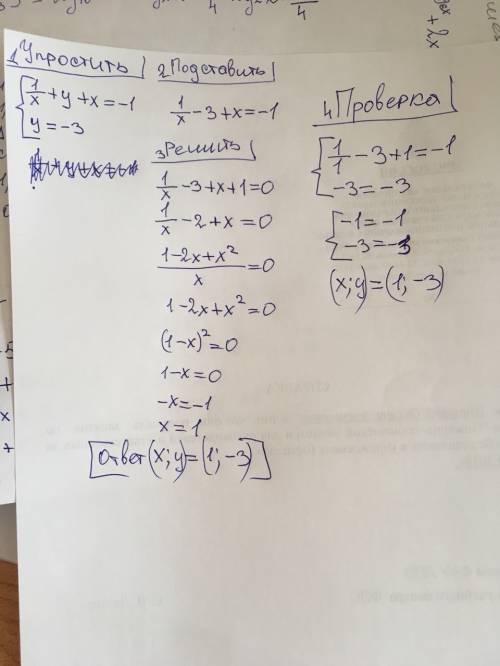 1 Упростить
{ 1/x + y + x = -1
y = -3
2 Подставить
1/x - 3 + x = -1
3 Решить
1/x - 3 + x + 1 = 0
1/x - 2 + x = 0
(1 - 2x + x²)/x = 0
1 - 2x + x² = 0
(1 - x)² = 0
1 - x = 0
-x = -1
x = 1
Ответ (x; y) = (1; -3)
4 Проверка
{ 1/1 - 3 + 1 = -1
-3 = -3
{ -1 = -1
-3 = -3
(x; y) = (1; -3)
+ 2x